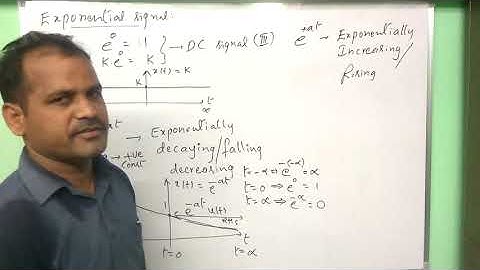 Exponential signal:
e⁰ = 1
K.e⁰ = K
→ DC signal (III)
x(t) = K
K
t
∞
e^{+at} ~ Exponentially
Increasing/
Rising
at — Exponentially
decaying/falling
decreasing
a → +ve
Const
x(t) = e^{-at}
1
e^{-at} u(t)
t
t=0
t=∝
t=-∝ ⇒ e^{-(-∝)} = ∝
t=0 ⇒ e⁰ = 1
t=∝ ⇒ e^{-∝} = 0